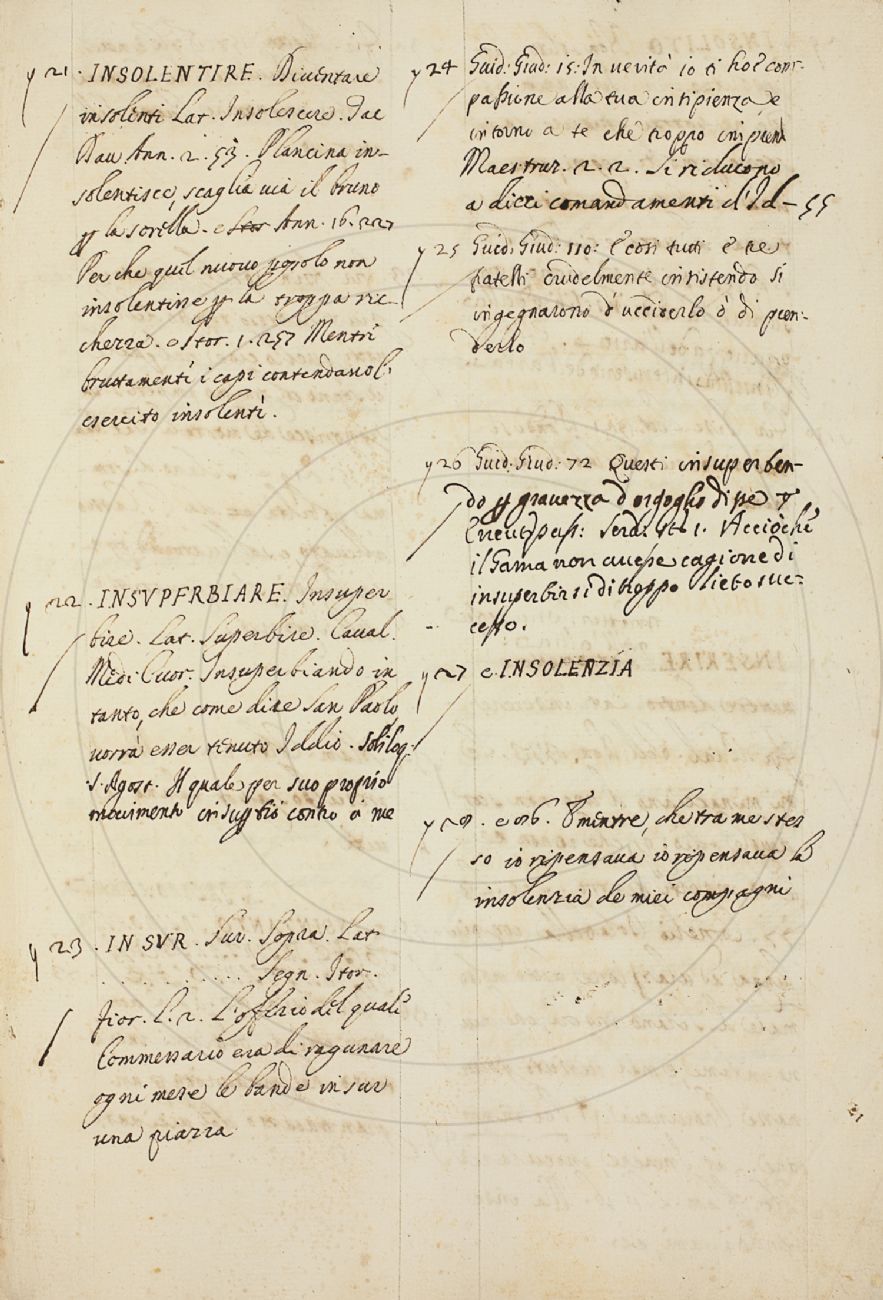 y 21. INSOLENTIRE. Diventare
insolenti Lat. Insolescere. Tac
Dav Ann. 2. 53. Plancina in-
solentisce, scaglia via il bruno
p la sorella. e Stor Ann. 16. 227
Per che quel nuovo popolo non
insolentisse p la troppa ric-
chezza. e Stor. 1. 257 Mentri
bruttamenti i capi contendavol.
esercito insolentì.
y 22. INSVPERBIARE. Insuper
bire. Lat. Superbire. Caval.
Medi. Cuor. Insuperbiando in
tanto, che come dice San Paolo,
vorrà esser tenuto Iddio. Soliloq.
S. Agost. Il quale per suo proprio
movimento insupbiò contro a me
y 23. IN SVR. Sur. Sopra. Lat.
. . . . . . . . . . Segn. Stor.
fior. L. 2. L'offizio del quale
Commessario era di ragunare
ogni mese le bande in sur
una piazza
y 24 Guid: Giud: 15: In verità io ti ho com-
passione alla tua insipienza, e
intorno a te che troppo
Maestruz. 2. 2. Si riducono
a dieci comandamenti d'Id- 55
y 25 Guid: Giud: 110: E così tutti e tre
fratelli crudelmente insistendo si
ingegnarono d'ucciderlo ò di pren-
derlo
y 26 Guid: Giud: 72 Questi insuperben-
do p gravezza d'orgoglio disse
Serd. Sto 1. Acciochè
il Gama non avesse cagione di
insuperbirsi di troppo lieto suc-
cesso.
y 27 e INSOLENZIA
y 28. e 86. E mentre, che tra me stes
so io ripensava io ripensava la
insolenzia de miei compagni